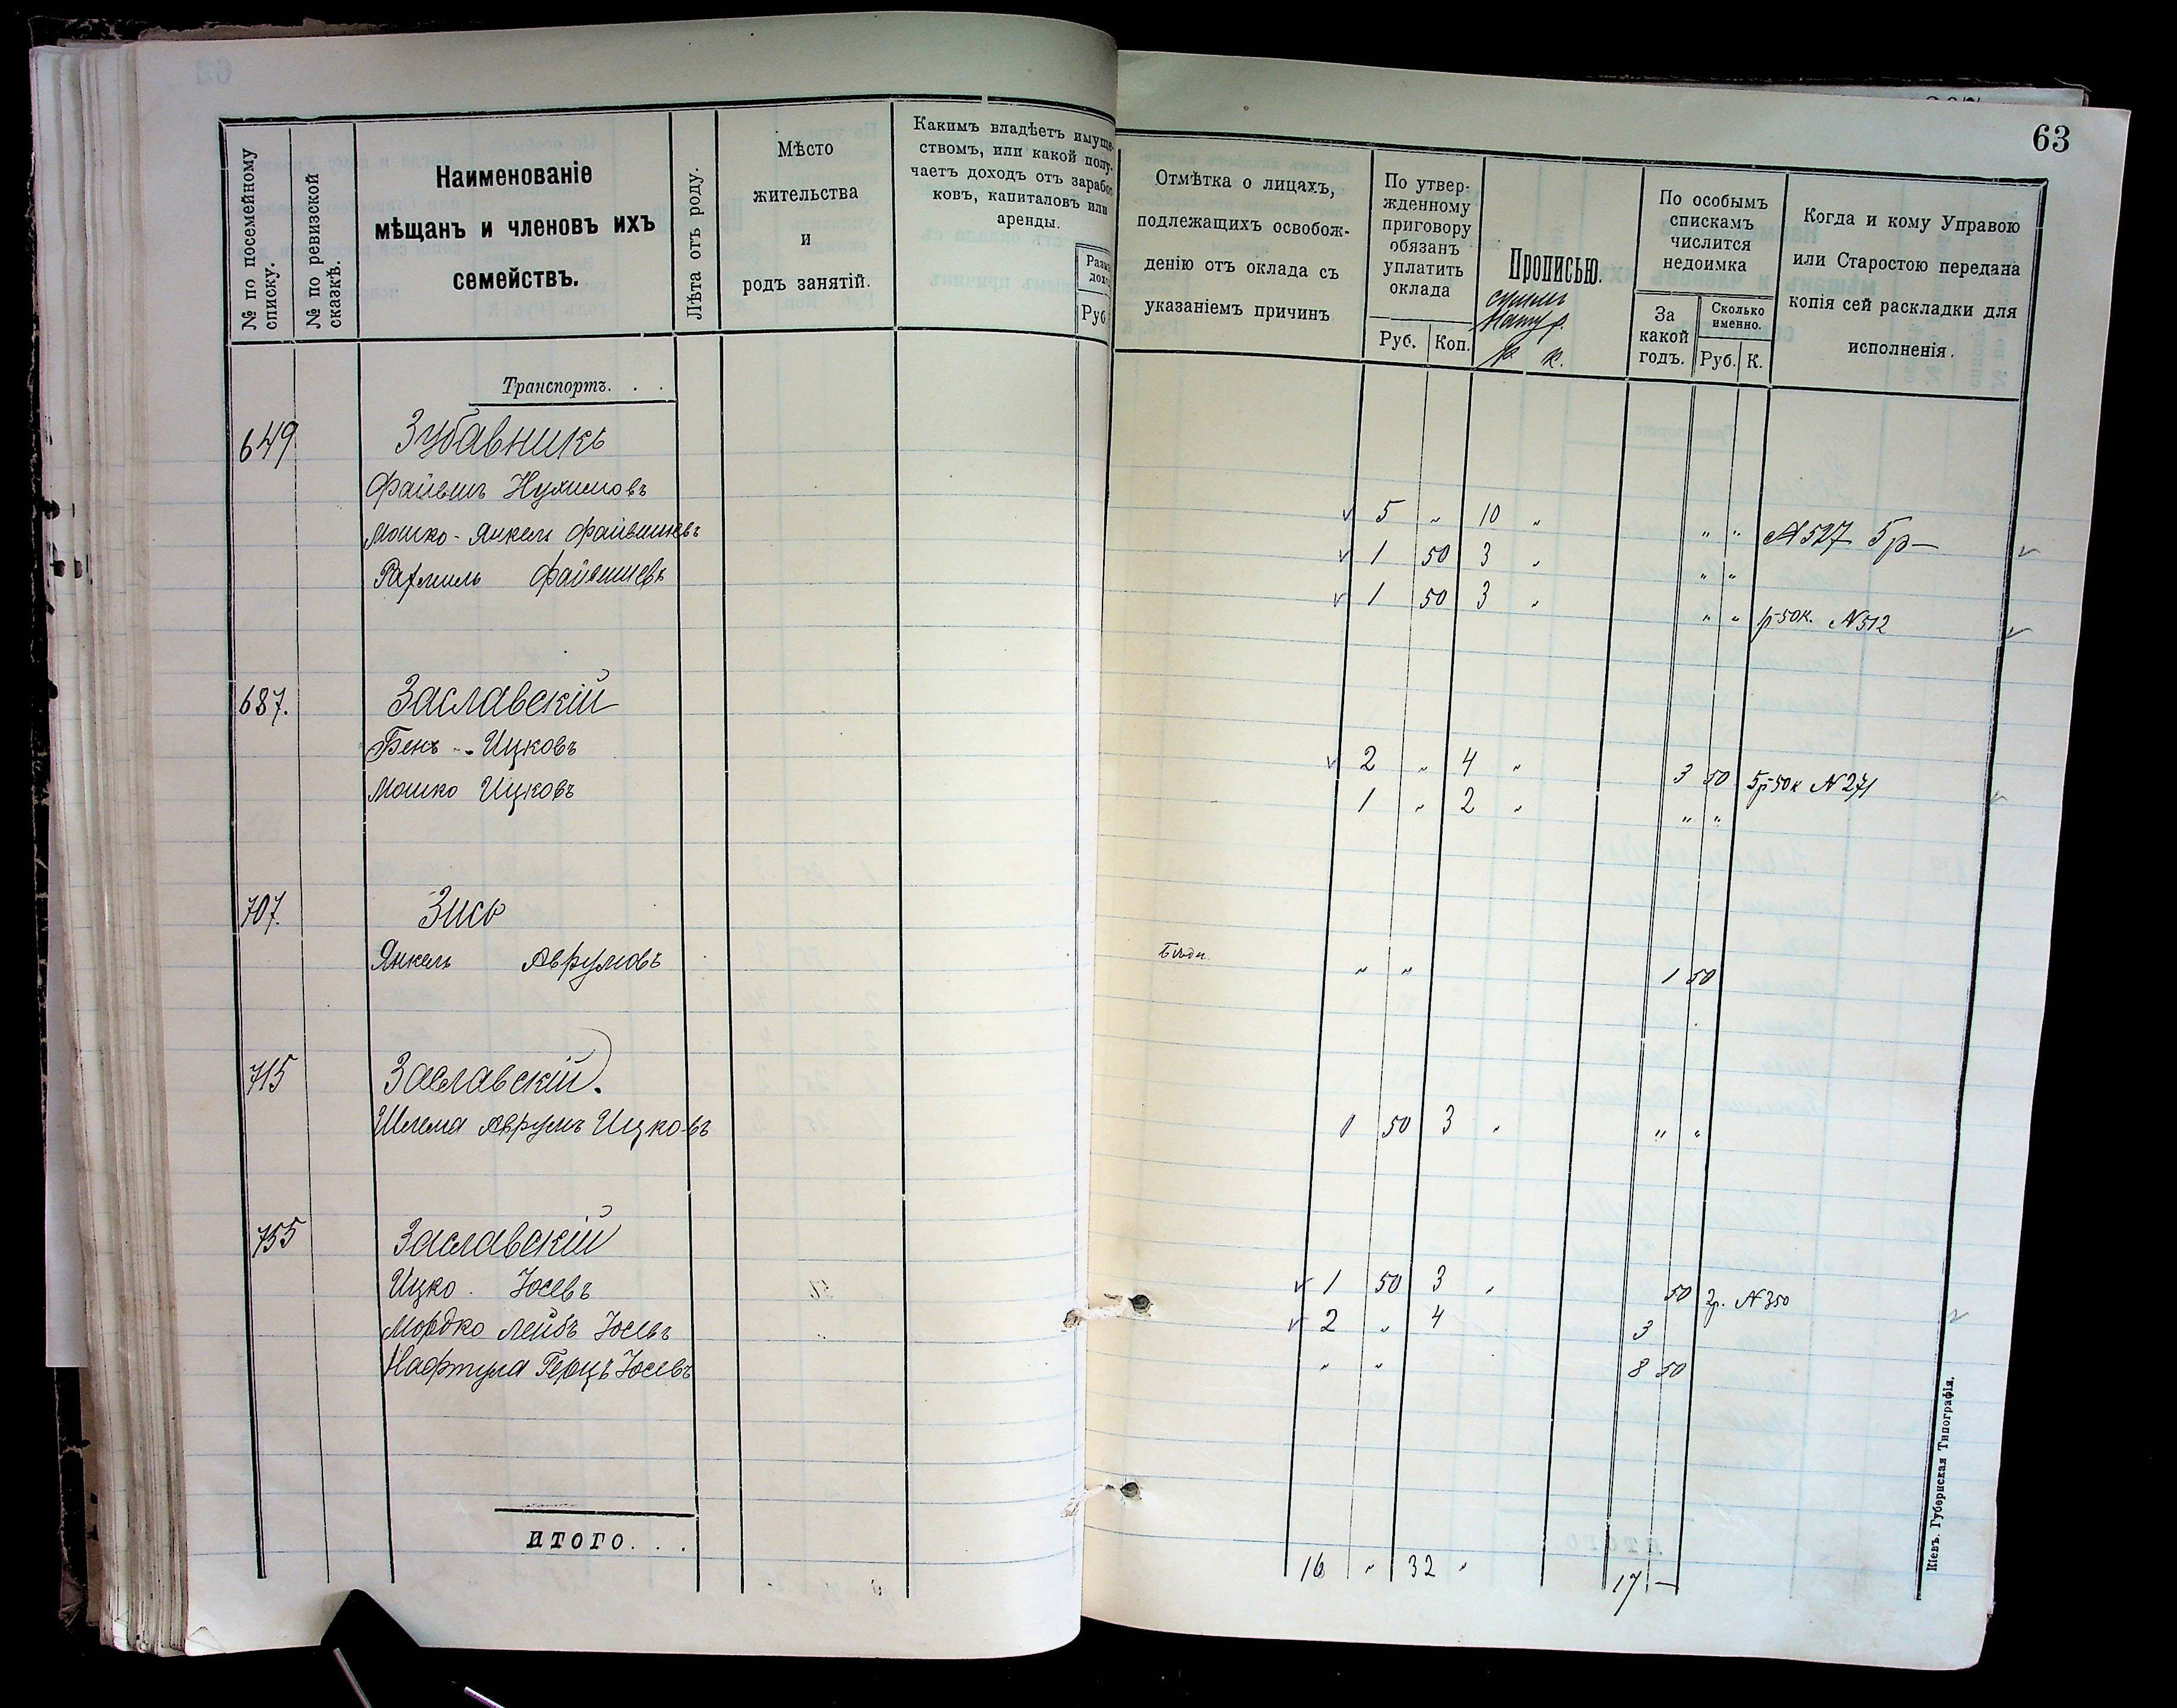 63
№ по посемейному списку.
№ по ревизской сказкѣ.
Наименованіе
мѣщанъ и членовъ ихъ
семействъ.
Лѣта отъ роду.
Мѣсто
жительства
и
родъ занятій.
Какимъ владѣетъ имуще-
ствомъ, или какой полу-
чаетъ доходъ отъ заработ
ковъ, капиталовъ или
аренды.
Руб
Отмѣтка о лицахъ,
подлежащихъ освобож-
денію отъ оклада съ
указаніемъ причинъ
По утвер-
жденному
приговору
обязанъ
уплатить
оклада
Руб. Коп.
Прописью.
По особымъ
спискамъ
числится
недоимка
За
какой
годъ.
Сколько
именно.
Руб. К.
Когда и кому Управою
или Старостою передана
копія сей раскладки для
исполненія.
Транспортъ. . .
649 Зубавникъ
Файвишъ Нухимовъ 5 „ 10 „ „ „ № 527 5 р —
Мошко-Янкель Файвишевъ 1 50 3 „ „ „
Рахмиль Файвишевъ 1 50 3 „ „ „ 1р 50к. № 512
687. Заславскій
Бенъ - Ицковъ 2 „ 4 „ 3 50 5р 50к № 271
Мошко Ицковъ 1 „ 2 „ „ „
707. Зись
Янкель Аврумовъ „ „ 1 50
715 Заславскій.
Шлема Аврумъ Ицковъ 1 50 3 „ „ „
755 Заславскій
Ицко Іосевъ 1 50 3 „ 50 2р. № 350
Мордко Лейбъ Іосевъ 2 „ 4 3
Нафтула Герцъ Іосевъ „ „ 8 50
ИТОГО. . . 16 „ 32 „ 17 —
Кіевъ. Губернская Типографія.